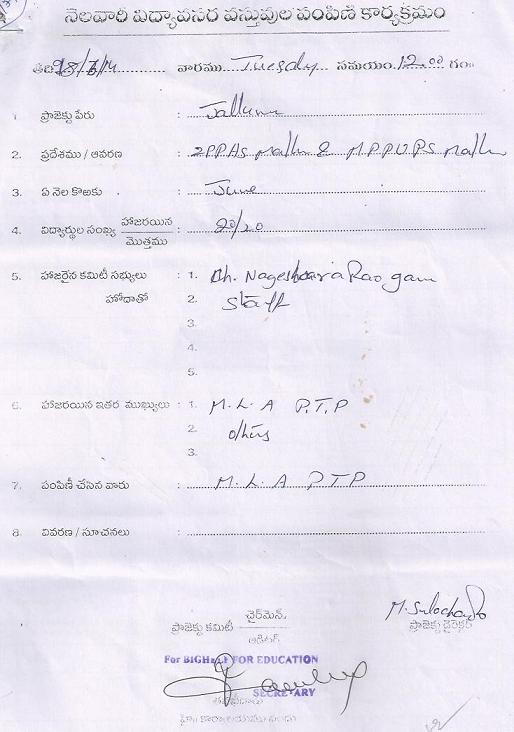 నెలవారీ విద్యావసర వస్తువుల పంపిణి కార్యక్రమం
వారము Tuesday సమయం 12.00 గం॥
1 ప్రాజెక్టు పేరు :
2. ప్రదేశము / ఆవరణ : ZPPHS & M.P.P.U.P.S
3. ఏ నెల కొఱకు : June
4. విద్యార్థుల సంఖ్య హాజరయిన / మొత్తము : 20/20
5. హాజరైన కమిటీ సభ్యులు : 1. Ch. Nageswara Rao garu
హోదాతో 2. Staff
3.
4.
5.
6. హాజరయిన ఇతర ముఖ్యులు : 1. M.L.A P.T.P
2. others
3.
7. పంపిణీ చేసిన వారు : M.L.A P.T.P
8. వివరణ / సూచనలు :
చైర్‌మెన్
M. Sulochana
ప్రాజెక్టు కమిటీ
ప్రాజెక్టు డైరెక్టర్
ఆడిటర్
FOR EDUCATION
SECRETARY